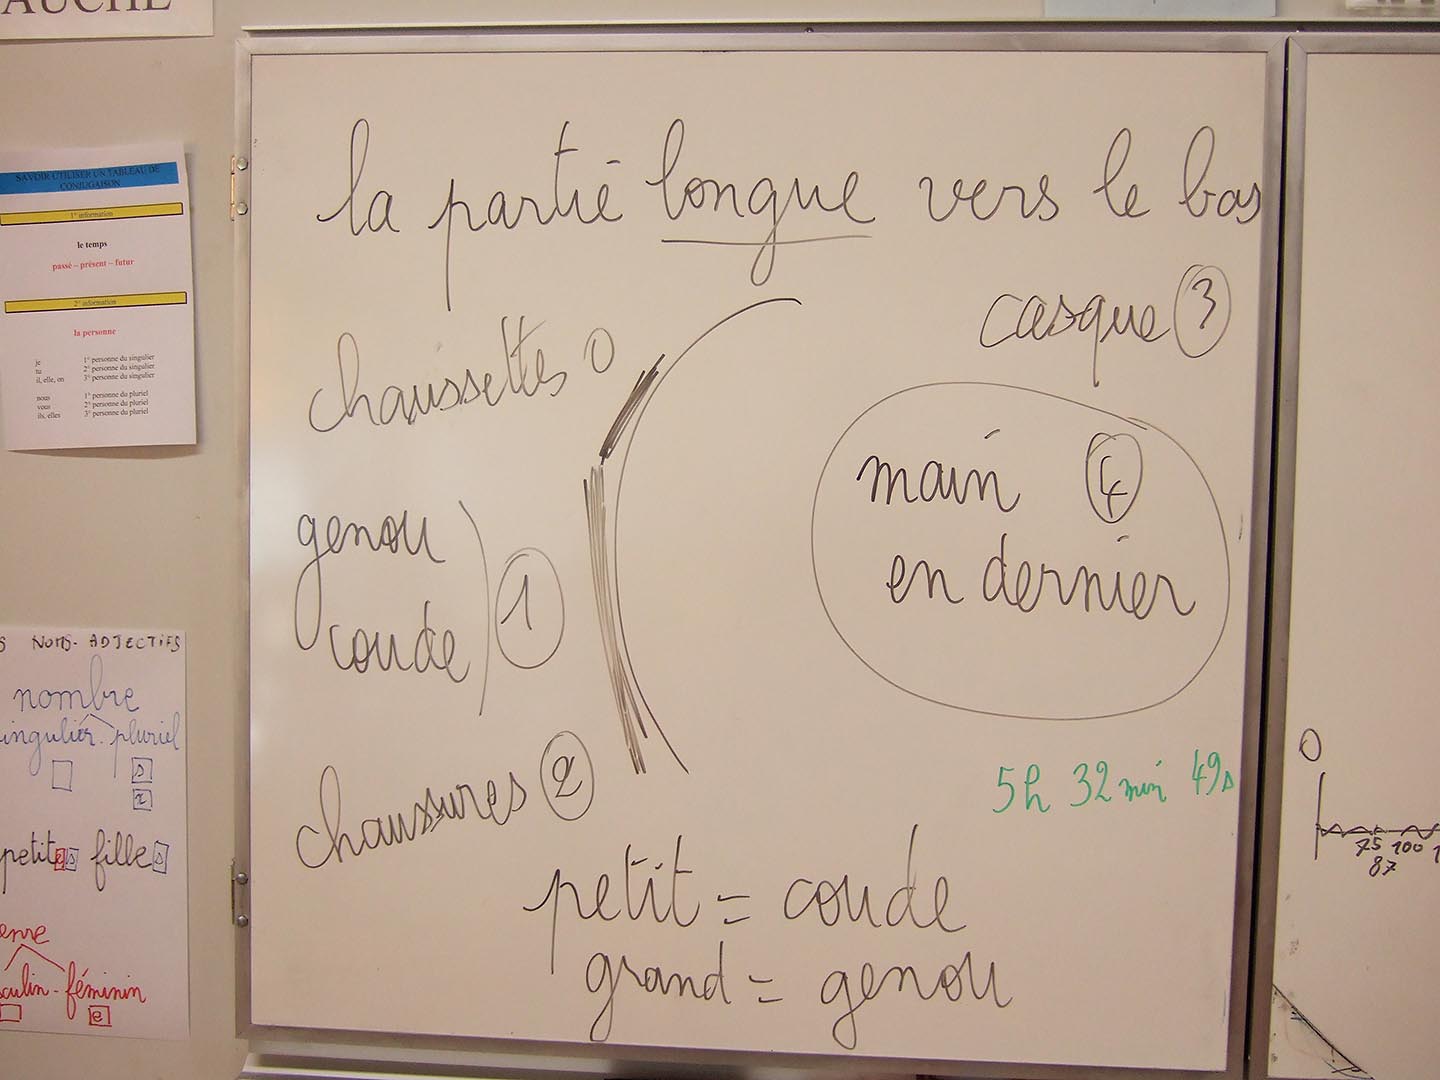 AUCHE
SAVOIR UTILISER UN TABLEAU DE
CONJUGAISON
1° information
le temps
passé – présent – futur
2° information
la personne
je 1° personne du singulier
tu 2° personne du singulier
il, elle, on 3° personne du singulier
nous 1° personne du pluriel
vous 2° personne du pluriel
ils, elles 3° personne du pluriel
S NOMS - ADJECTIFS
nombre
ingulier - pluriel
s
x
petites filles
enre
culin - féminin
e
la partie longue vers le bas
casque 3
chaussettes 0
main 4
en dernier
genou
coude 1
chaussures 2
5h 32 min 49s
petit = coude
grand = genou
0
75 100 1
87